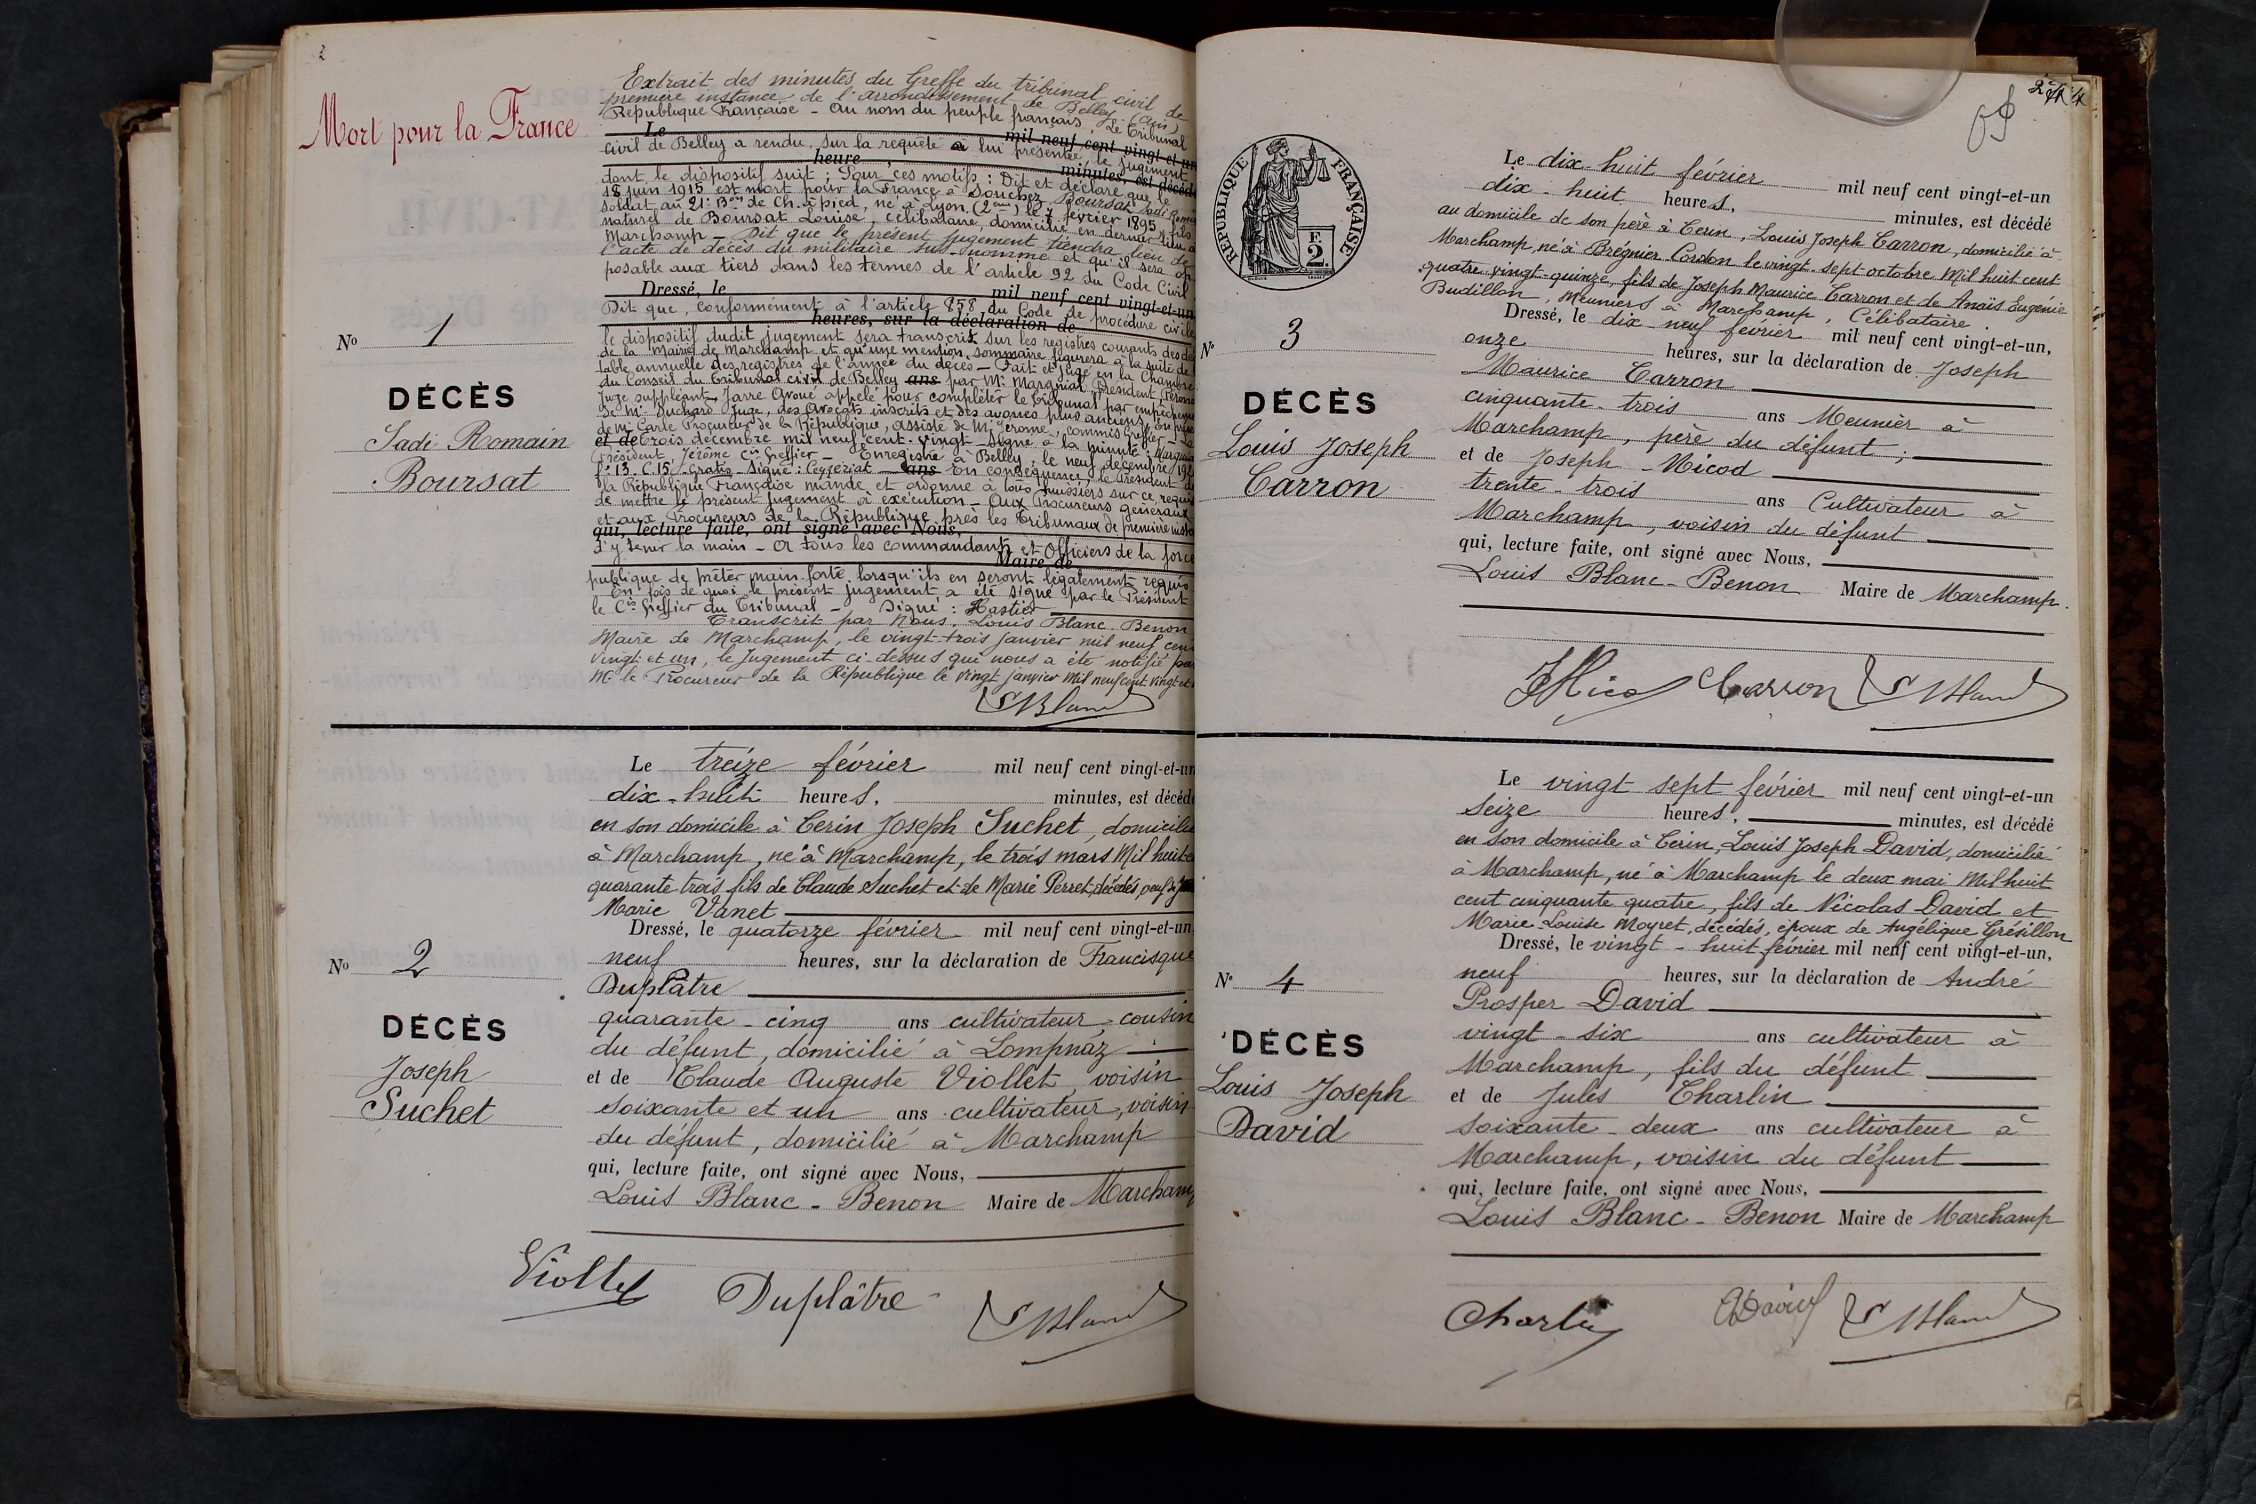 2
Mort pour la France
Extrait des minutes du Greffe du tribunal civil de
première instance de l'arrondissement de Belley (Ain)
République Française - Au nom du peuple français, Le Tribunal
Le mil neuf cent vingt-et-un
civil de Belley a rendu, sur la requête à lui présentée, le jugement
heure minutes, est décédé
dont le dispositif suit : Pour ces motifs : Dit et déclare que le
18 juin 1915 est mort pour la France à Souchez, Boursat Sadi Romain
soldat au 21e Bon de Ch. à pied, né à Lyon (2eme) le 7 février 1895, fils
naturel de Boursat Louise, célibataire, domicilié en dernier lieu à
Marchamp - Dit que le présent jugement tiendra lieu de
l'acte de décès du militaire sus-nommé et qu'il sera op
posable aux tiers dans les termes de l'article 92 du Code Civil
Dressé, le mil neuf cent vingt-et-un
Dit que, conformément à l'article 858 du Code de procédure civile
heures, sur la déclaration de
le dispositif dudit jugement sera transcrit sur les registres courants des dé
de la Mairie de Marchamp et qu'une mention sommaire figurera à la suite de
table annuelle des registres de l'année du décès - Fait et jugé en la Chambre
du Conseil du Tribunal civil de Belley ans par Mr. Margniat, Président,
Juge suppléant, Jarre Avoué appelé pour compléter le Tribunal par empêcheme
de Mr Duchard Juge, des Avocats inscrits et des avoués plus anciens, En prés
de Mr Carle Procureur de la République, assisté de Mr Jérome, commis Greffier - Le
et de trois décembre mil neuf cent vingt - Signé à la minute : Margniat
Président, Jérôme Cis Greffier - Enregistré à Belley, le neuf décembre 192
fo 13. C. 15. Gratis - Signé : Ceyzériat - ans En conséquence, le Président de
la République Française mande et ordonne à tous huissiers sur ce requis
de mettre le présent jugement à exécution - Aux Procureurs généraux
et aux Procureurs de la République près les Tribunaux de première insta
qui, lecture faite, ont signé avec Nous,
d'y tenir la main - A tous les commandants et Officiers de la force
Maire de
publique de prêter main forte lorsqu'ils en seront légalement requis
En fois de quoi le présent jugement a été signé par le Président
le Cis Greffier du Tribunal - Signé : Hastier
Transcrit par Nous, Louis Blanc-Benon
Maire de Marchamp, le vingt-trois janvier mil neuf cent
vingt-et un, le jugement ci-dessus qui nous a été notifié par
Mr le Procureur de la République le vingt janvier mil neuf cent vingt et
LBlanc
No 1
DÉCÈS
Sadi Romain
Boursat
Le treize février mil neuf cent vingt-et-un
dix-huit heures, minutes, est décédé
en son domicile à Cerin Joseph Suchet, domicilié
à Marchamp, né à Marchamp, le trois mars Mil huit c
quarante trois fils de Claude Suchet et de Marie Perret, décédés, veuf de
Marie Vanet
Dressé, le quatorze février mil neuf cent vingt-et-un
neuf heures, sur la déclaration de Francisque
Duplâtre
quarante-cinq ans cultivateur, cousin
du défunt, domicilié à Lompnaz
et de Claude Auguste Viollet, voisin
soixante et un ans cultivateur, voisin
du défunt, domicilié à Marchamp
qui, lecture faite, ont signé avec Nous,
Louis Blanc-Benon Maire de Marchamp
No 2
DÉCÈS
Joseph
Suchet
Viollet Duplâtre LBlanc
RÉPUBLIQUE FRANÇAISE
F
2.
Le dix-huit février mil neuf cent vingt-et-un
dix-huit heures, minutes, est décédé
au domicile de son père à Cerin, Louis Joseph Carron, domicilié à
Marchamp, né à Brégnier Cordon le vingt-sept octobre Mil huit cent
quatre vingt-quinze, fils de Joseph Maurice Carron et de Anaïs Eugénie
Budillon, Meuniers à Marchamp, Célibataire
Dressé, le dix-neuf février mil neuf cent vingt-et-un,
onze heures, sur la déclaration de Joseph
Maurice Carron
cinquante-trois ans Meunier à
Marchamp, père du défunt ;
et de Joseph Micod
trente-trois ans Cultivateur à
Marchamp, voisin du défunt
qui, lecture faite, ont signé avec Nous,
Louis Blanc-Benon Maire de Marchamp.
No 3
DÉCÈS
Louis Joseph
Carron
JMico Carron LBlanc
Le vingt sept février mil neuf cent vingt-et-un
seize heures, minutes, est décédé
en son domicile à Cerin, Louis Joseph David, domicilié
à Marchamp, né à Marchamp le deux mai Mil huit
cent cinquante quatre, fils de Nicolas David et
Marie-Louise Moyret, décédés, époux de Angélique Grésillon
Dressé, le vingt-huit février mil neuf cent vingt-et-un,
neuf heures, sur la déclaration de André
Prosper David
vingt-six ans cultivateur à
Marchamp, fils du défunt
et de Jules Charlin
soixante-deux ans cultivateur à
Marchamp, voisin du défunt
qui, lecture faite, ont signé avec Nous,
Louis Blanc-Benon Maire de Marchamp
No 4
DÉCÈS
Louis Joseph
David
Charlin ADavid LBlanc